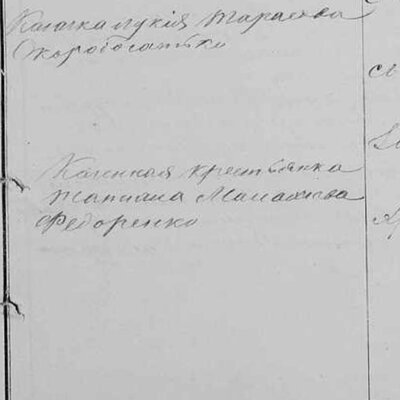 Казачка Лукія Тарасова
Скоробогатько
Казенная крестьянка
Татиана Малахиева
Федоренко